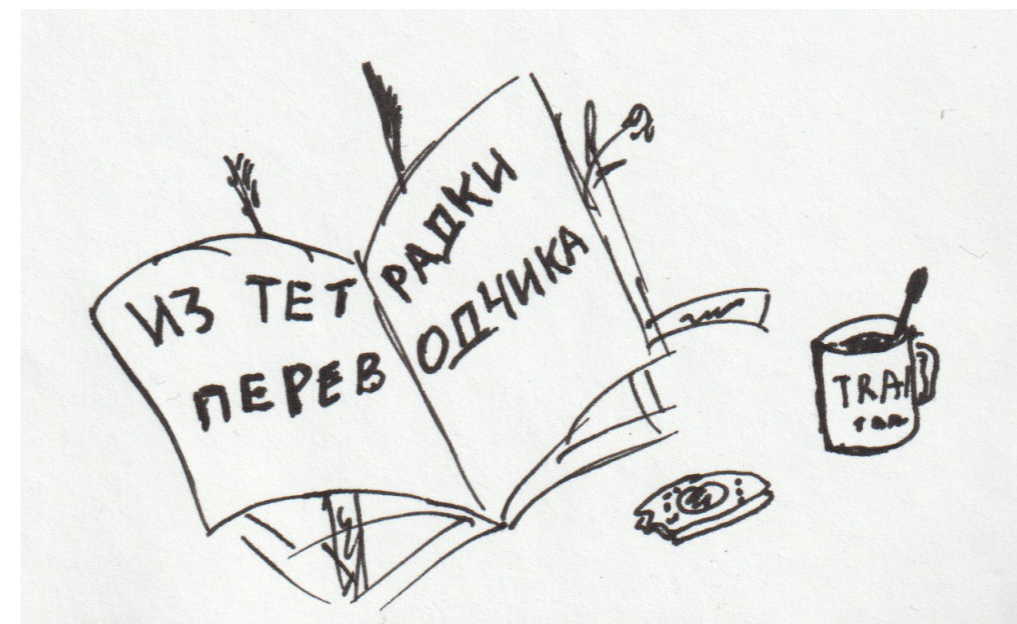 ИЗ ТЕТРАДКИ
ПЕРЕВОДЧИКА
TRAN